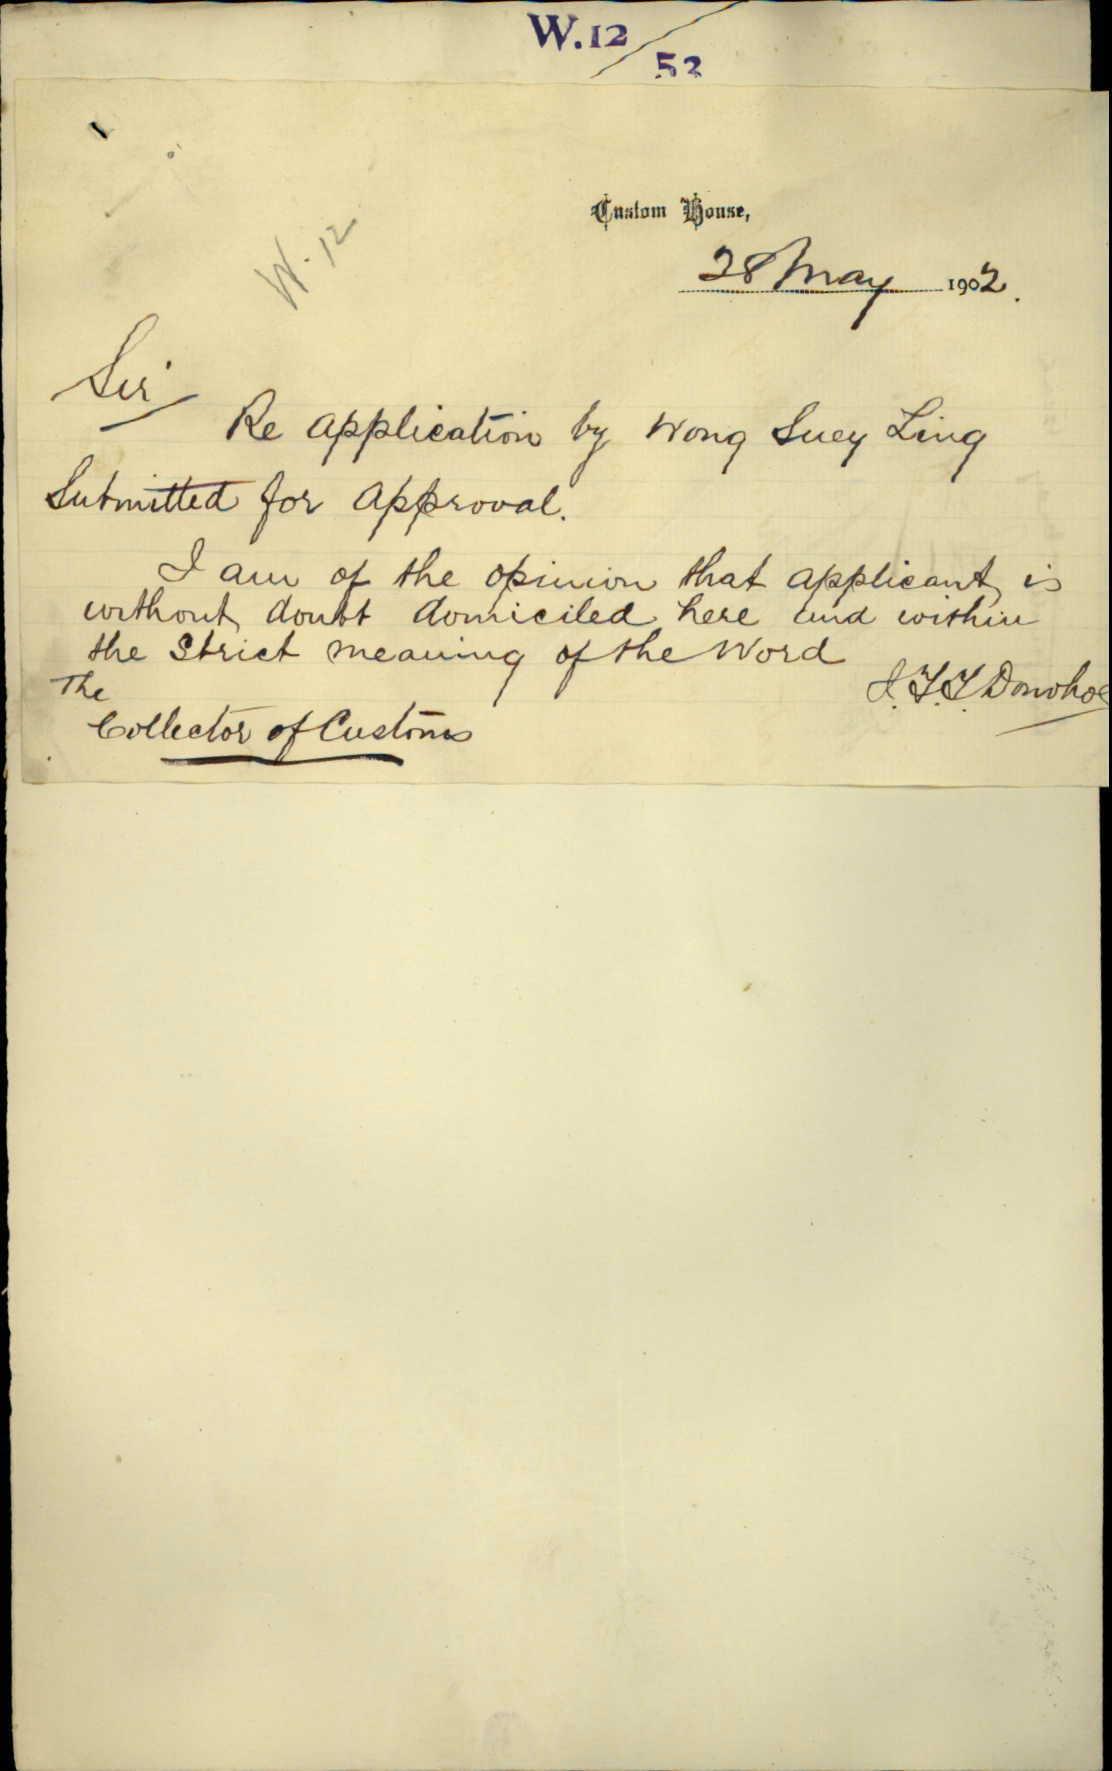 W.12/53
Custom House,
W.12
28 May 1902.
Sir
Re application by Wong Suey Ling
Submitted for approval.
I am of the opinion that applicant is
without doubt domiciled here and within
the Strict meaning of the Word
J.T.T. Donohoe
The
Collector of Customs